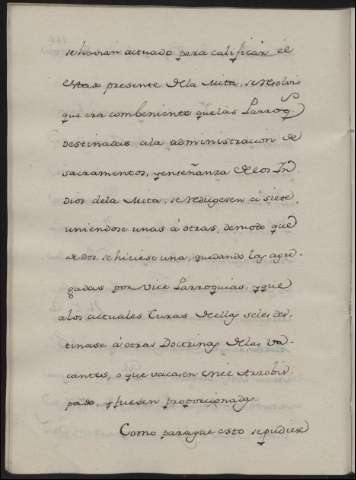 se havian actuado para calificar el
estar presente dela Mita, se resolvió
que era combeniente que las Parroq.s
destinadas ala administracion de
sacramentos, y enseñanza delos In
dios dela Mita, se redugesen à siete
uniendose unas à otras, de modo que
de dos se hiciese una, quedando las agre-
gadas por Vice Parroquias, y que
alos actuales Curas de ellas se les des-
tinase à otras Doctrinas delas va-
cantes, o que vacasen en ese Arzobis
pado, y fuesen proporcionadas
Como para que esto se pudiese